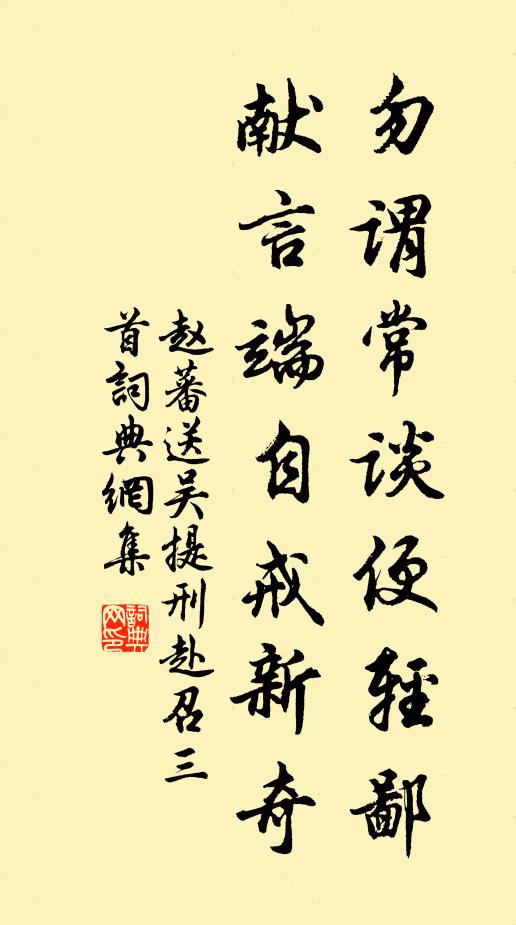 勿谓常谈便轻鄙
献言端自戒新奇
赵蕃送吴提刑赴召三
首词典網集
詞典
网印